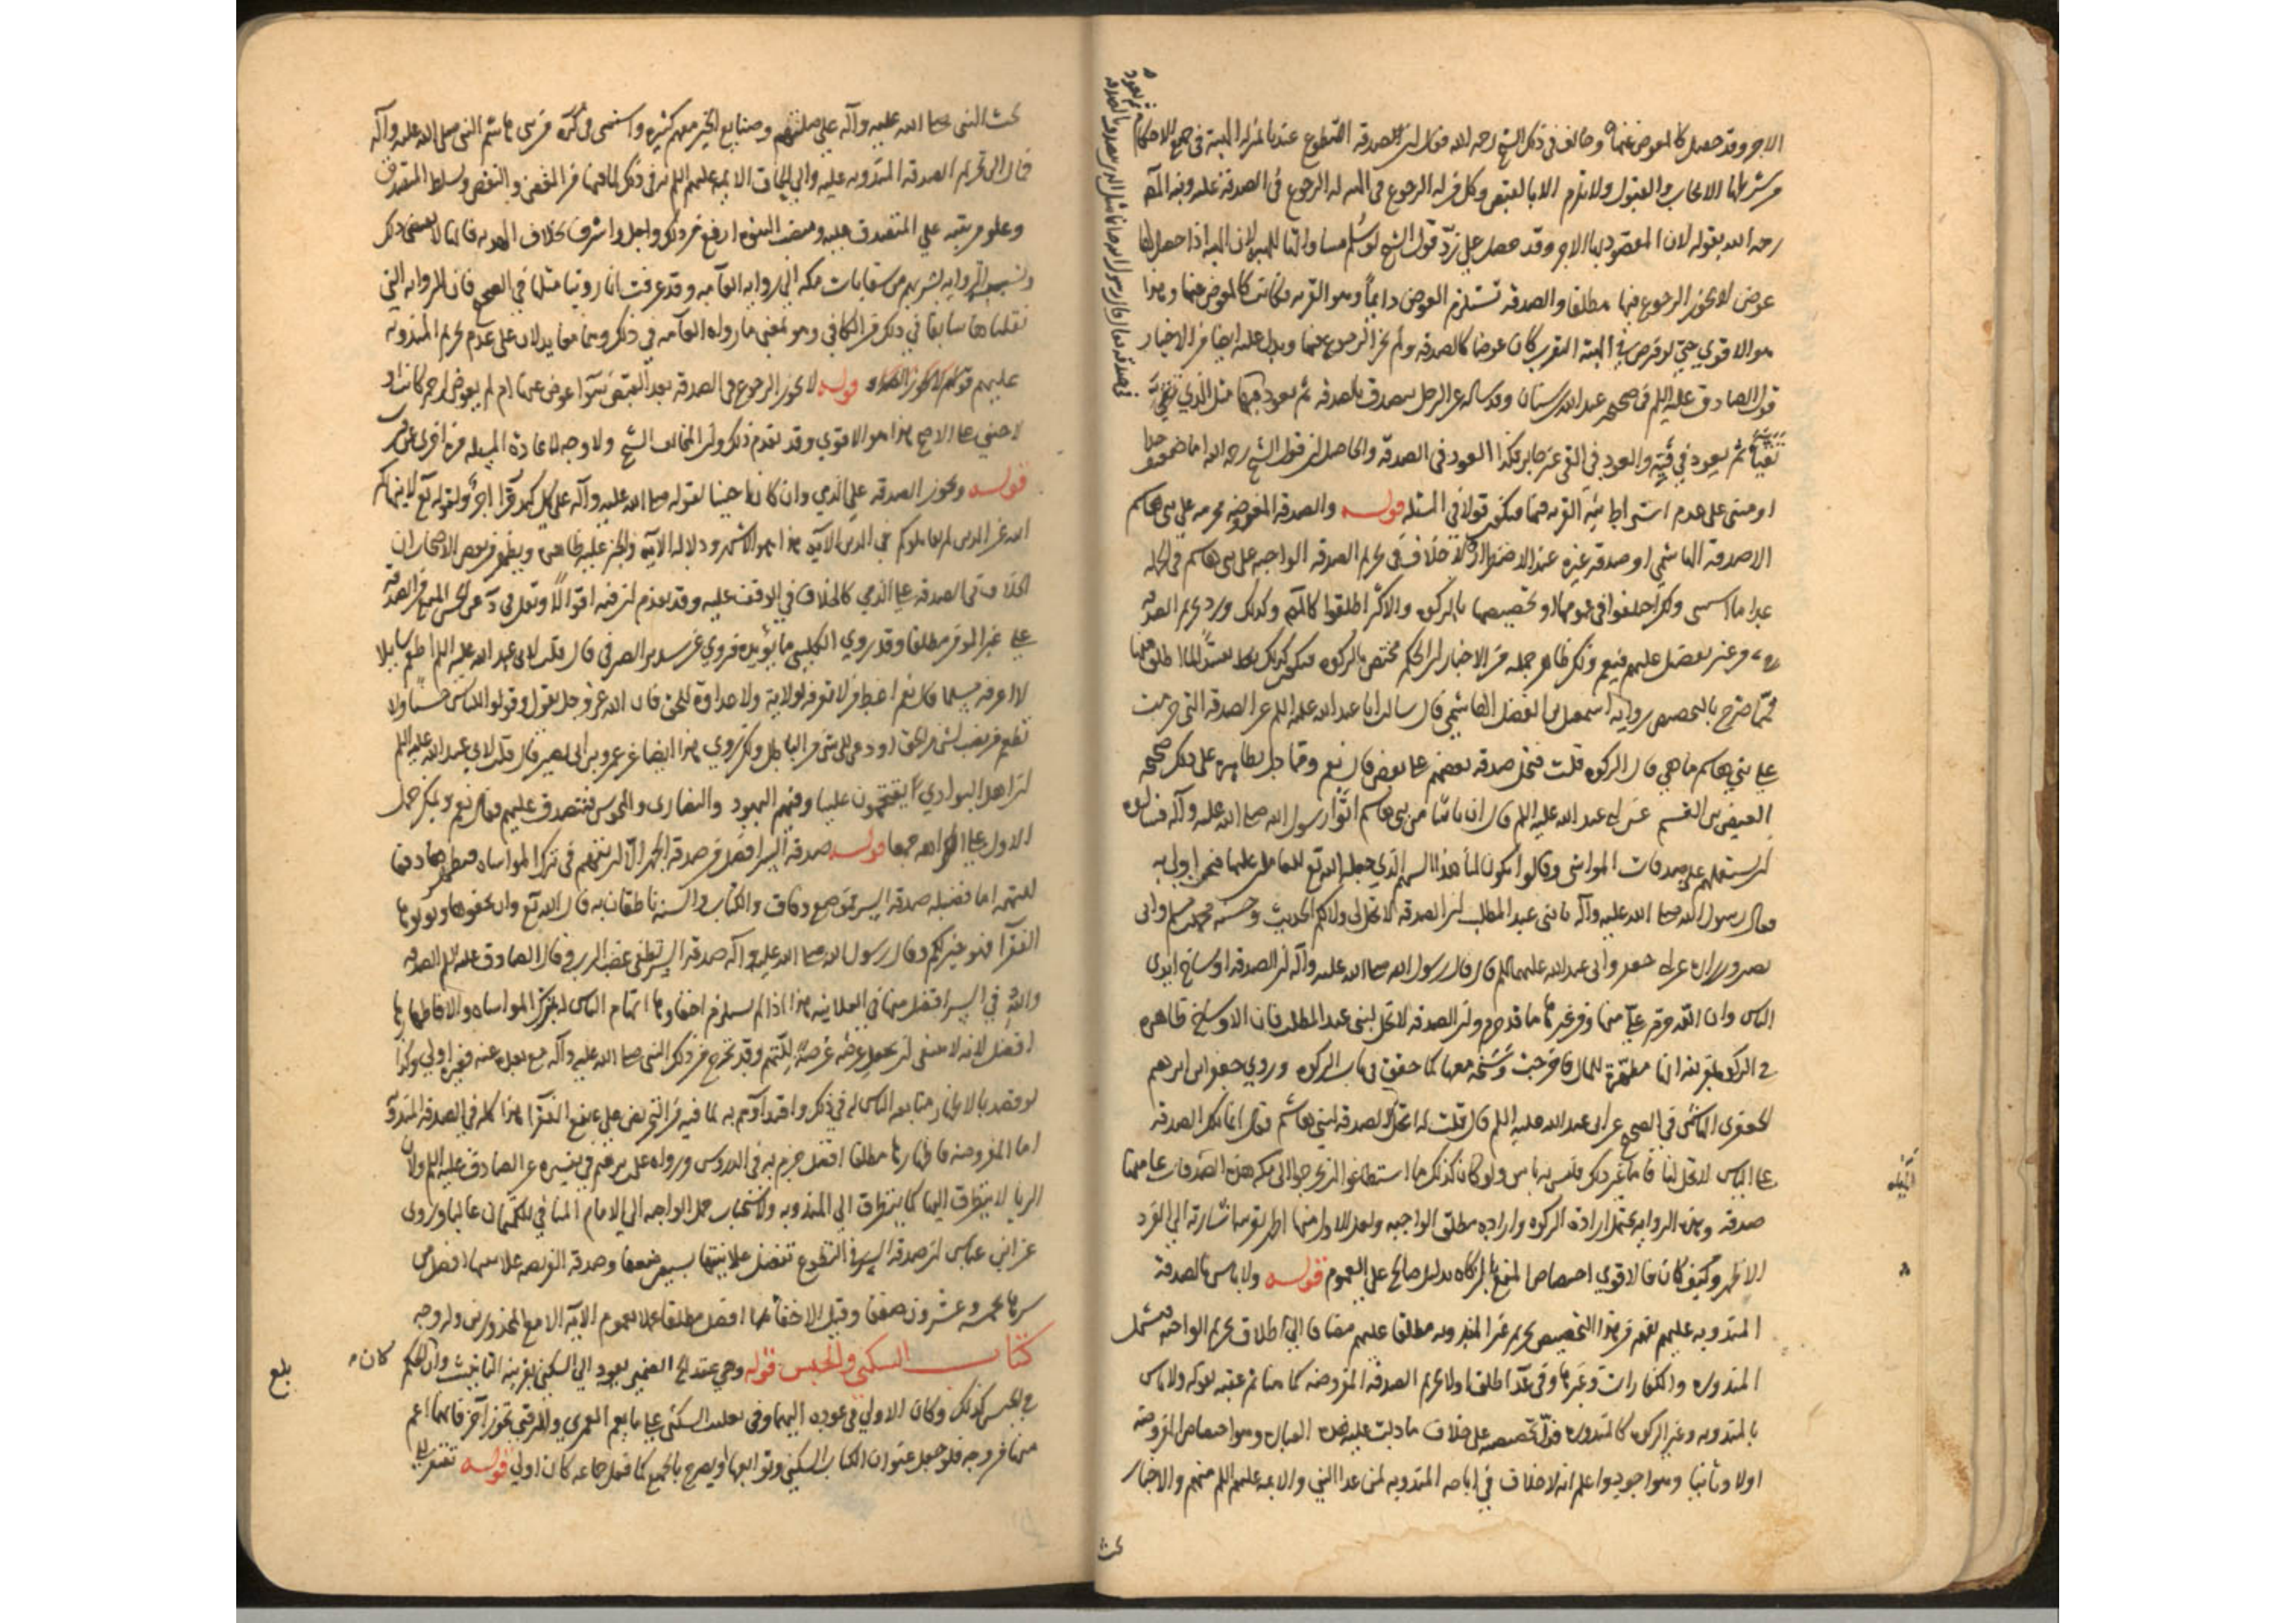 الاجر وقد حصل كالمعوض عنها وخالف في ذلك الشيخ رحمه الله فقال ان الصدقة التطوع عندنا بمنزلة الهبة في جميع الاحكام
من شرطها الايجاب والقبول ولا تلزم الا بالقبض وكل من له الرجوع في الهبة له الرجوع في الصدقة عليه ونبه المصنف
رحمه الله بقوله لان المقصود بها الاجر وقد حصل على رد قول الشيخ لو سلم مساواتها للهبة لان الهبة اذا حصل لها
عوض لا يجوز الرجوع فيها مطلقا والصدقة تستلزم العوض دايما وهو القربة فكانت كالمعوض عنها وهذا
هو الاقوي حتى لو فرض في الهبة التقرب كان عوضا كالصدقة ولم يجز الرجوع فيها ويدل عليه ايضا من الاخبار
قول الصادق عليه السلم في صحيحة عبد الله بن سنان وقد ساله عن الرجل يتصدق بالصدقة ثم يعود فيها مثل الذي يتقيأ
ثم يعود في قيئه والعود في القي غير جايز فكذا العود في الصدقة والحاصل ان قول الشيخ رحمه الله اما ضعيف جدا
او مبني على عدم اشتراط نية القربة فيها فيكون قولا في المسئلة قوله والصدقة المفروضة محرمة على بني هاشم
الا صدقة الهاشمي او صدقة غيره عند الاضطرار لا خلاف في تحريم الصدقة الواجبة على بني هاشم في الجملة
عدا ما استثنى ولكن اختلفوا في عمومها او تخصيصها بالزكوة والاكثر اطلقوا كالمصنف وكذلك ورد تحريم الصدقة
من غير تفصيل عليهم فيعم ولكن ظاهر جملة من الاخبار ان الحكم مختص بالزكوة فيكون ذلك مقيدا لما اطلق منها
فمما صرح بالتخصيص رواية اسمعيل بن الفضل الهاشمي قال سالت ابا عبد الله عليه السلم عن الصدقة التي حرمت
على بني هاشم ما هي قال الزكوة قلت فتحل صدقة بعضهم على بعض قال نعم ومما دل بظاهره على ذلك صحيحة
العيص بن القسم عن ابي عبد الله عليه السلم قال ان ناسا من بني هاشم اتوا رسول الله صلى الله عليه وآله فسالوه
ان يستعملهم على صدقات المواشي وقالوا يكون لنا هذا السهم الذي جعله الله تع للعاملين عليها فنحن اولى به
فقال رسول الله صلى الله عليه وآله يا بني عبد المطلب ان الصدقة لا تحل لي ولا لكم الحديث وحسنة محمد بن مسلم وابي
بصير وزرارة عن ابي جعفر وابي عبد الله عليهما السلم قال قال رسول الله صلى الله عليه وآله ان الصدقة اوساخ ايدي
الناس وان الله حرم علي منها ومن غيرها ما قد حرم وان الصدقة لا تحل لبني عبد المطلب فان الاوساخ ظاهرة
في الزكوة بقرينة انها مطهرة للمال فاخرجت وسخه معها كما حقق في باب الزكوة وروي جعفر ابن ابرهيم
الجعفري الهاشمي في الصحيح عن ابي عبد الله عليه السلم قال قلت له اتحل الصدقة لبني هاشم فقال انما تلك الصدقة
على الناس لا تحل لنا فاما غير ذلك فليس به باس ولو كان كذلك ما استطاعوا ان يخرجوا الى مكة هذه الصدقات عامتها
صدقة وهذه الرواية تحتمل ارادة الزكوة وارادة مطلق الواجبة ولعل الاول منها اظهر بقرينة الاشارة الى الفرد
الاظهر وكيف كان فالاقوي اختصاص المنع بالزكاة بدليل صالح على العموم قوله ولا باس بالصدقة
المندوبة عليهم يفهم من هذا التخصيص تحريم غير المندوبة مطلقا عليهم مضافا الى اطلاق تحريم الواجبة فيشمل
المنذورة والكفارات وغيرها وفي عد اطلق اولا تحريم الصدقة المفروضة كما هنا ثم عقبه بقوله ولا باس
بالمندوبة وغير الزكوة كالمنذورة فدل تخصيصه على خلاف ما دلت عليه هذه العبارة وهو اختصاص المفروضة
اولا وثانيا وهو اجود واعلم انه لا خلاف في اباحة المندوبة لمن عدا النبي والايمة عليهم السلم منهم والاخبار
بحث
بحث النبي صلى الله عليه وآله على صلتهم وصنايع الخير معهم كثيرة واستثنى في التذكرة من بني هاشم النبي صلى الله عليه وآله
فمال الى تحريم الصدقة المندوبة عليه والى الحاق الايمة عليهم السلم به في ذلك لما فيها من الغض والنقص وتسلط المتصدق
وعلو مرتبته على المتصدق عليه ومنصب النبوة ارفع من ذلك واجل واشرف بخلاف الهدية فانها لا تقتضي ذلك
ونسب الرواية بشربهم من سقايات مكة الى رواية العامة وقد عرفت انا روينا مثلها في الصحيح فان الرواية التي
نقلناها سابقا في ذلك من الكافي وهو بمعنى ما رواه العامة في ذلك وهما معا يدلان على عدم تحريم المندوبة
عليهم قوله لا يجوز الرجوع في الصدقة بعد القبض سوآ عوض عنها ام لم يعوض لرحم كانت او
لاجنبي على الاصح هذا هو الاقوي وقد تقدم ذلك وان المخالف الشيخ ولا وجه لاعادة المسئلة مرة اخرى
قوله وتجوز الصدقة على الذمي وان كان اجنبيا لقوله صلى الله عليه وآله على كل كبد حرا اجر ولقوله تع لا ينهاكم
الله عن الذين لم يقاتلوكم في الدين الآية هذا هو الاشهر ودلالة الآية والخبر عليه ظاهرة ويظهر من بعض الاصحاب ان
الخلاف في الصدقة على الذمي كالخلاف في الوقف عليه وقد تقدم ان فيه اقوالا ونقل في س عن الحسن المنع من الصدقة
على غير المومن مطلقا وقد روي الكليني ما يؤيده فروي عن سدير الصيرفي قال قلت لابي عبد الله عليه السلم اطعم سايلا
لا اعرفه مسلما فقال نعم اعط من لا تعرفه بولاية ولا عداوة للحق فان الله عز وجل يقول وقولوا للناس حسنا ولا
تطعم من نصب لشي من الحق او دعى الى شي من الباطل ولكن روي هذا ايضا عن عمرو بن ابي نصر قال قلت لابي عبد الله عليه السلم
ان اهل البوادي يقتحمون علينا وفيهم اليهود والنصارى والمجوس فنتصدق عليهم فقال نعم ويمكن حمل
الاول على الكراهه جمعا قوله صدقة السر افضل من صدقة الجهر الا ان يتهم في ترك المواساه فيظهرها دفعا
للتهمة اما فضيلة صدقة السر فموضع وفاق والكتاب والسنة ناطقان به قال الله تع وان تخفوها وتؤتوها
الفقرا فهو خير لكم وقال رسول الله صلى الله عليه وآله صدقة السر تطفي غضب الرب وقال الصادق عليه السلم الصدقة
والله في السر افضل منها في العلانية هذا اذا لم يستلزم اخفاوها اتهام الناس له بترك المواساه والا فاظهارها
افضل لانه لا ينبغي ان يجعل عرضه عرضة للتهم وقد تحرج من ذلك النبي صلى الله عليه وآله مع بعده عنه فغيره اولى وكذا
لو قصد بالاظهار متابعة الناس له في ذلك واقتدآؤهم به لما فيه من التحريض على نفع الفقرآ هذا كله في الصدقة المندوبة
اما المفروضة فاظهارها مطلقا افضل جزم به في الدروس ورواه على بن ابرهيم في تفسيره عن الصادق عليه السلم ولان
الريا لا يتطرق اليها كما يتطرق الى المندوبة ولاستحباب حمل الواجبة الى الامام المنافي للكتمان غالبا وروى
عن ابن عباس ان صدقة السر في التطوع تفضل علانيتها بسبعين ضعفا وصدقة الفريضة علانيتها افضل من
سرها بخمسة وعشرون ضعفا وقيل الاخفآ فيها افضل مطلقا عملا بعموم الآية الا مع المحذورين وله وجه
كتاب السكنى والحبس قوله وهي عقد الخ الضمير يعود الى السكنى بقرينة التانيث وان كان الحكم
في الحبس كذلك وكان الاولى عوده اليهما وفي تغليب السكنى على ما يعم العمري والرقبى تجوز آخر فانهما اعم
منها من وجه فلو جعل عنوان الكتاب السكنى وتوابعها او يصرح بالجميع كما فعل جماعة كان اولى قوله تفتقر الى
بلغ